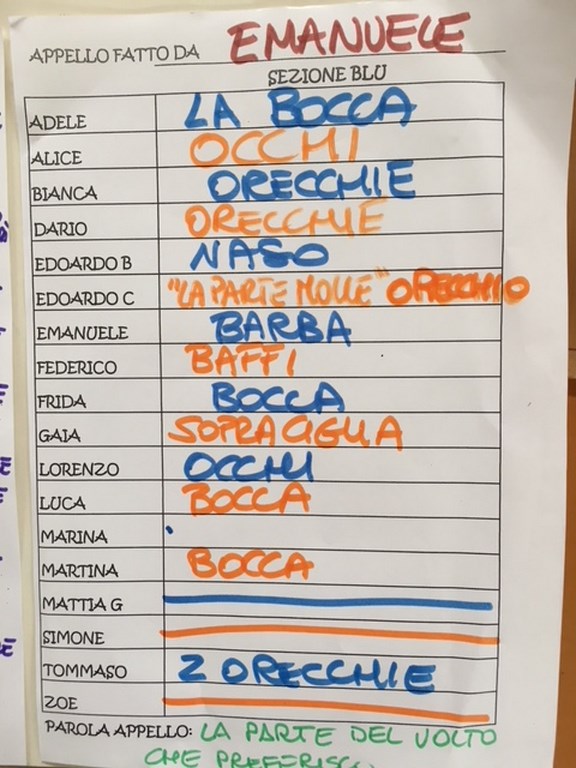 APPELLO FATTO DA EMANUELE
SEZIONE BLU
ADELE LA BOCCA
ALICE OCCHI
BIANCA ORECCHIE
DARIO ORECCHIE
EDOARDO B NASO
EDOARDO C "LA PARTE MOLLE" ORECCHIO
EMANUELE BARBA
FEDERICO BAFFI
FRIDA BOCCA
GAIA SOPRACIGLIA
LORENZO OCCHI
LUCA BOCCA
MARINA
MARTINA BOCCA
MATTIA G
SIMONE
TOMMASO 2 ORECCHIE
ZOE
PAROLA APPELLO: LA PARTE DEL VOLTO
CHE PREFERISCO